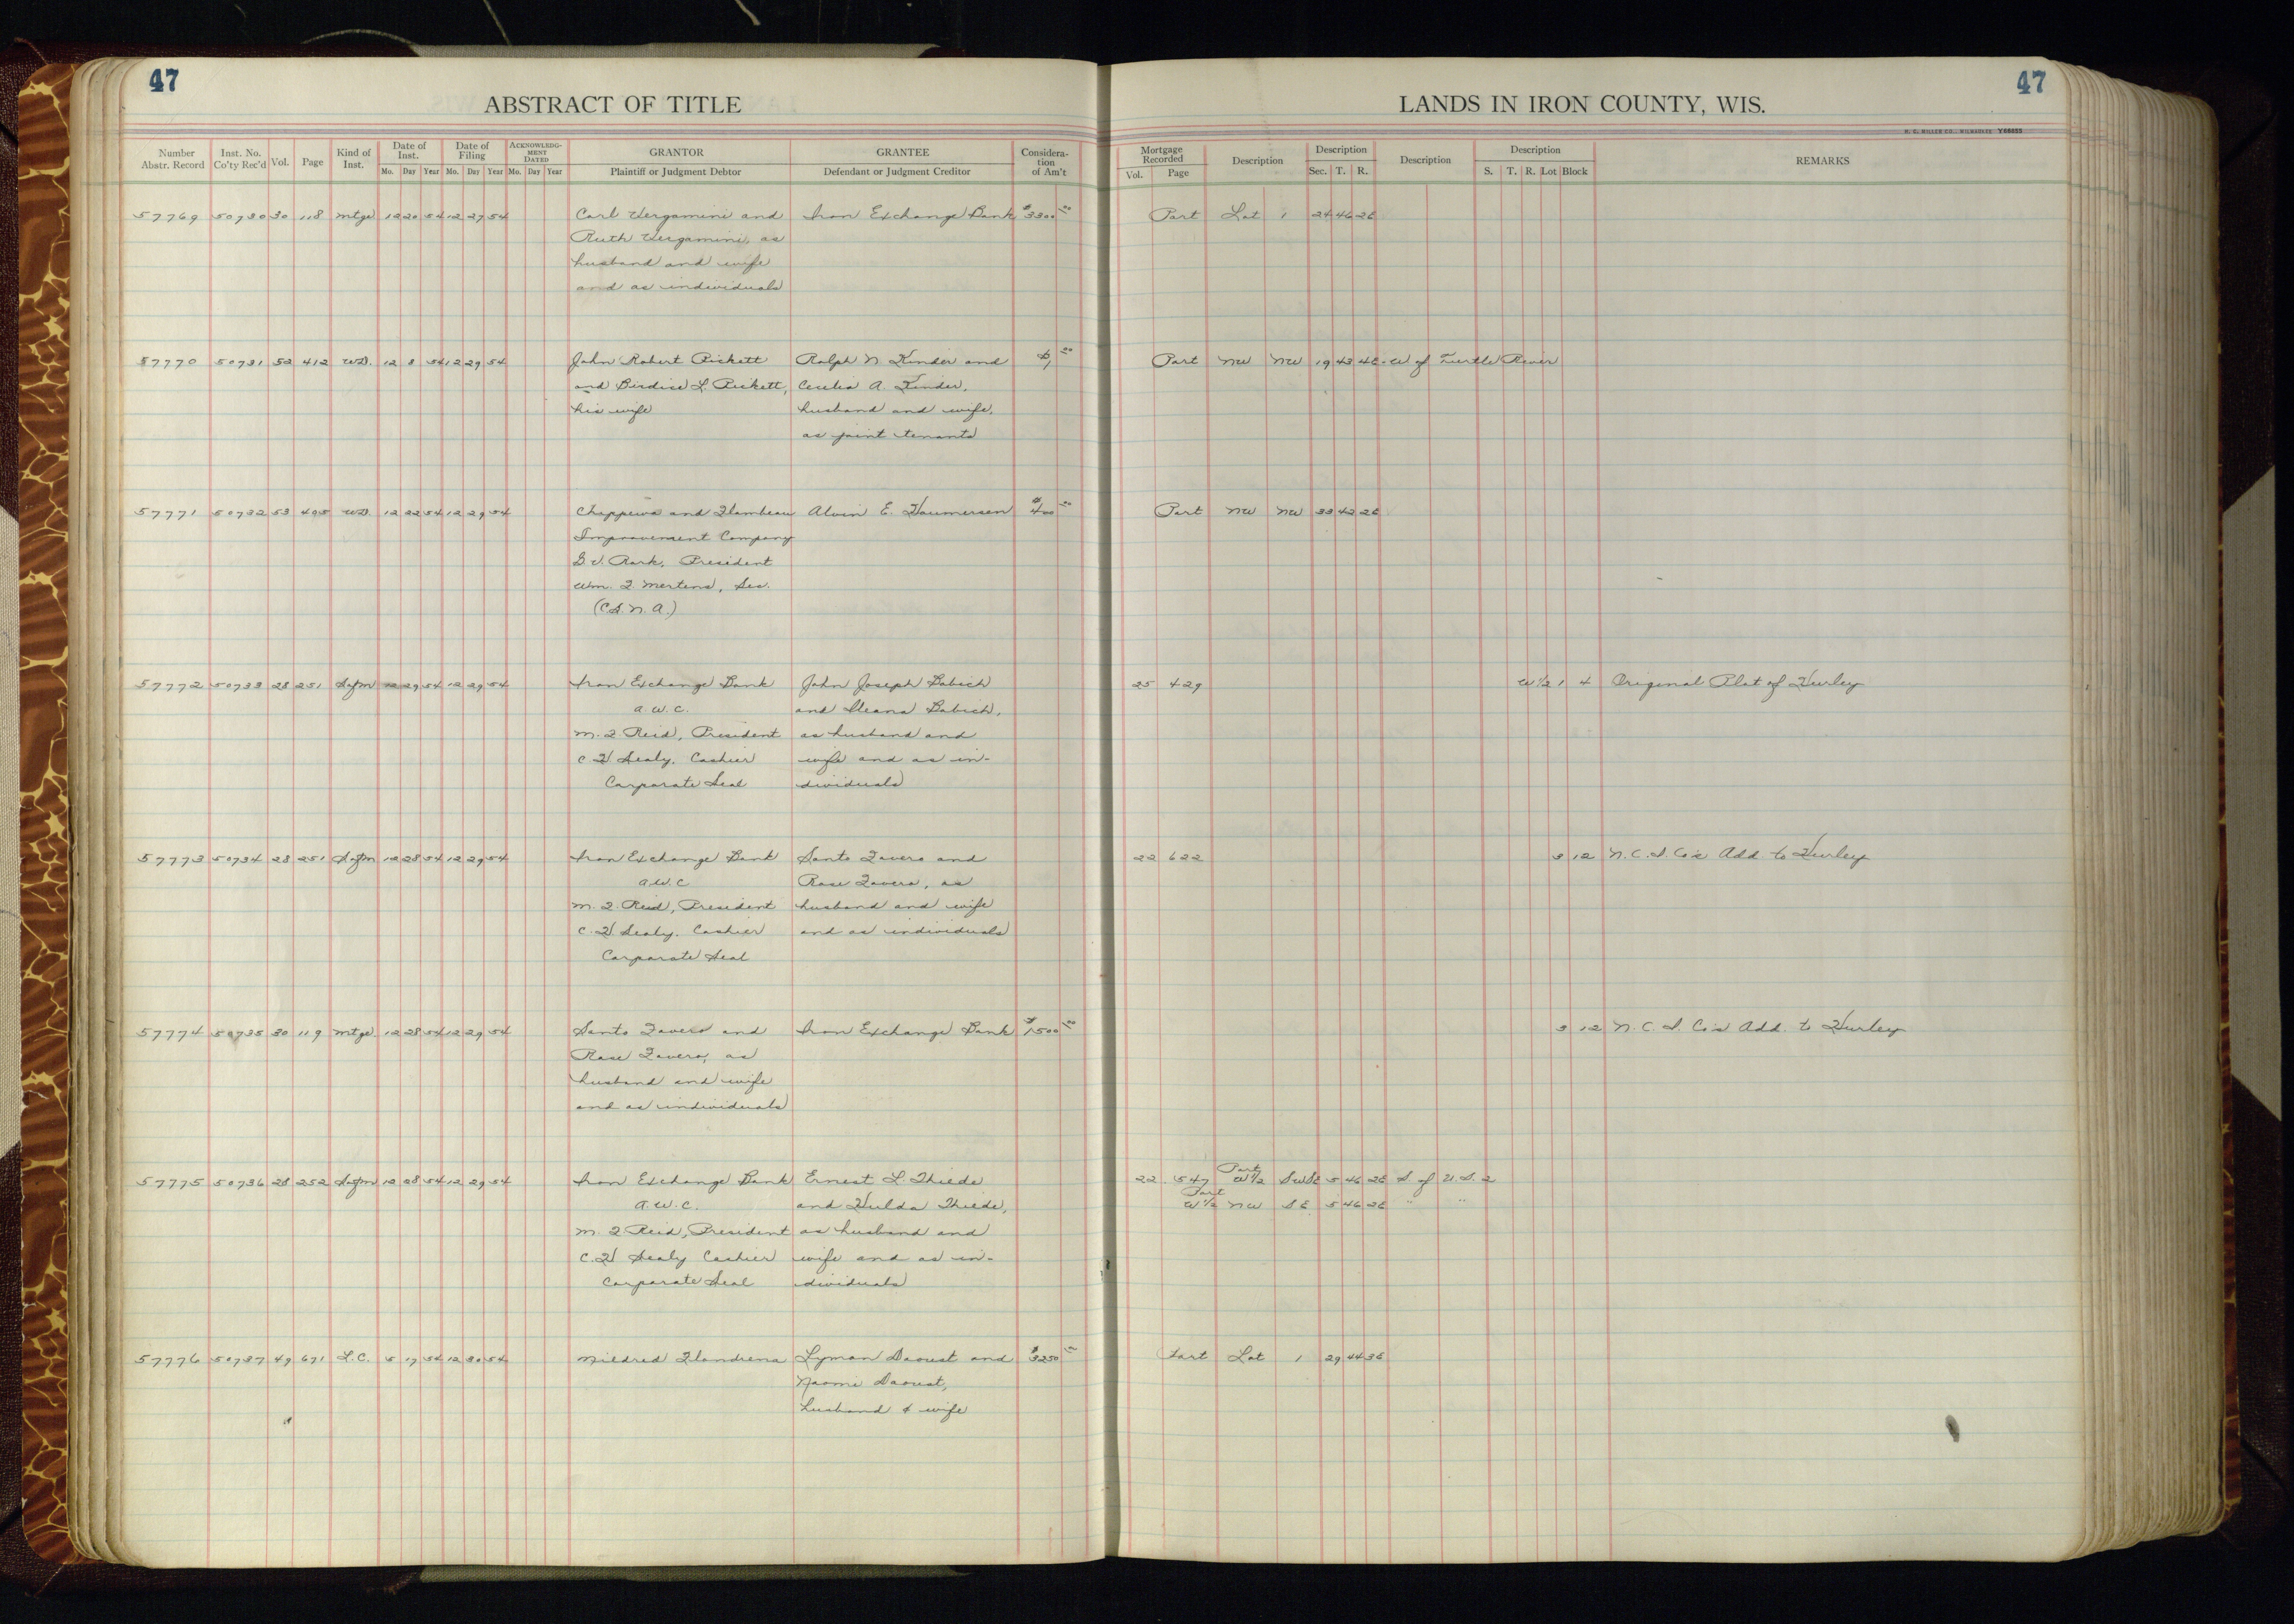 47
ABSTRACT OF TITLE
Number Abstr. Record Inst. No. Co'ty Rec'd Vol. Page Kind of Inst. Date of Inst. Mo. Day Year Date of Filing Mo. Day Year ACKNOWLEDGMENT DATED Mo. Day Year GRANTOR Plaintiff or Judgment Debtor GRANTEE Defendant or Judgment Creditor Consideration of Am't
47
LANDS IN IRON COUNTY, WIS.
H. C. MILLER CO., MILWAUKEE Y66855
Mortgage Recorded Vol. Page Description Description Sec. T. R. Description Description S. T. R. Lot Block REMARKS
57769 50730 30 118 Mtge 12 20 54 12 27 54 Carl Vergamini and Iron Exchange Bank $3300.00 Part Lot 1 24 46 2E
Ruth Vergamini, as
husband and wife
and as individuals
57770 50731 52 412 WD. 12 8 54 12 29 54 John Robert Rickett Ralph N Kinder and $1.00 Part NW NW 19 43 4E - W of Turtle River
and Birdice L. Rickett, Cecelia A. Kinder,
his wife husband and wife,
as joint tenants
57771 50732 53 405 WD. 12 22 54 12 29 54 Chippewa and Flambeau Alvin E. Haumersen $400.00 Part NW NW 33 42 2E
Improvement Company
G. V. Rork, President
Wm. F. Mertens, Sec.
(C.S.N.A.)
57772 50733 28 251 Satfm 12 29 54 12 29 54 Iron Exchange Bank John Joseph Babich 25 429 W 1/2 1 4 Original Plat of Hurley
A.W.C. and Ileana Babich,
M. F. Reid, President as husband and
C. H. Sealy, Cashier wife and as in-
Corporate Seal dividuals
57773 50734 28 251 Satfm 12 28 54 12 29 54 Iron Exchange Bank Santo Favero and 22 622 3 12 N.C.I. Co's Add. to Hurley
A.W.C Rose Favero, as
M. F. Reid, President husband and wife
C. H. Sealy, Cashier and as individuals
Corporate Seal
57774 50735 30 119 Mtge 12 28 54 12 29 54 Santo Favero and Iron Exchange Bank $1500.00 3 12 N.C.I. Co's Add. to Hurley
Rose Favero, as
husband and wife
and as individuals
57775 50736 28 252 Satfm 12 28 54 12 29 54 Iron Exchange Bank Ernest L. Thiede 22 547 Part W 1/2 SW SE 5 46 2E S of U.S. 2
A.W.C. and Hulda Thiede, Part W 1/2 NW SE 5 46 2E " "
M. F. Reid, President as husband and
C. H. Sealy Cashier wife and as in-
Corporate Seal dividuals
57776 50737 49 671 L.C. 5 17 54 12 30 54 Mildred Flandrena Lyman Daoust and $3250.00 Part Lot 1 29 44 3E
Naomi Daoust,
husband & wife